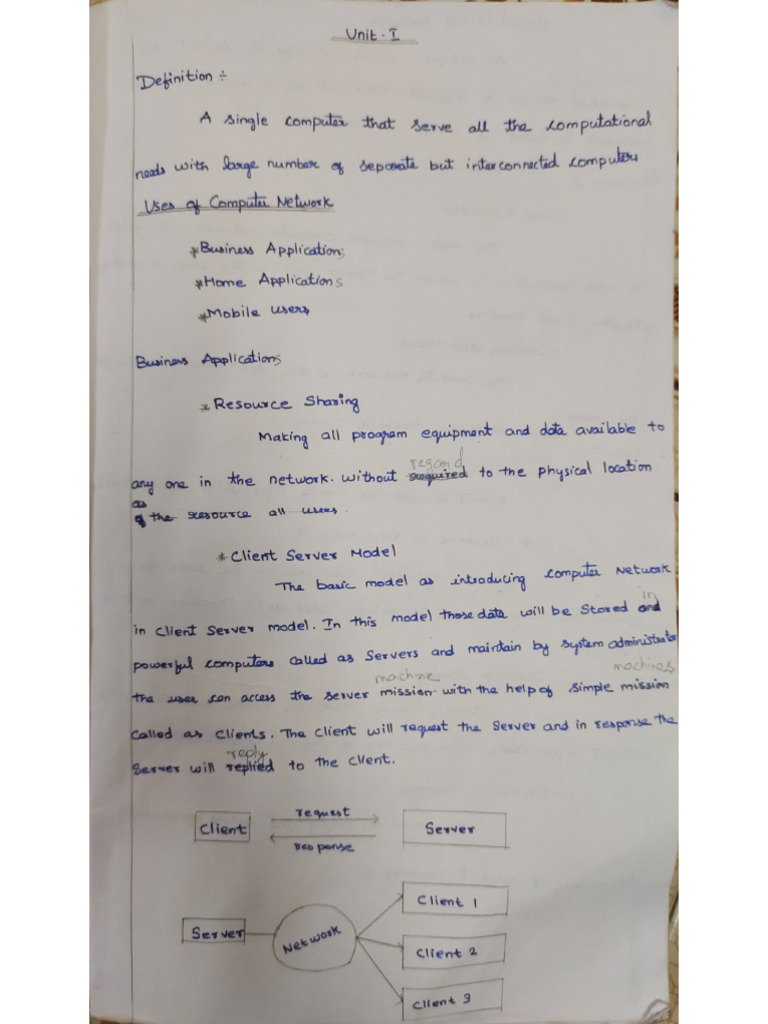 Unit - I
Definition ÷
A single computer that serve all the computational
needs with large number of separate but interconnected computers
Uses of Computer Network
* Business Applications
* Home Applications
* Mobile users
Business Applications
* Resource Sharing
Making all program equipment and data available to
regard
any one in the network. without required to the physical location
as
of the resource all users.
* Client Server Model
The basic model as introducing computer Network
in
in Client Server model. In this model those data will be Stored and
powerful computers called as Servers and maintain by system administrator
machine machines
the user can access the server mission. with the help of simple mission
called as clients. The client will request the Server and in response the
reply
Server will replied to the client.
request
Client Server
response
Client 1
Server Network
Client 2
Client 3